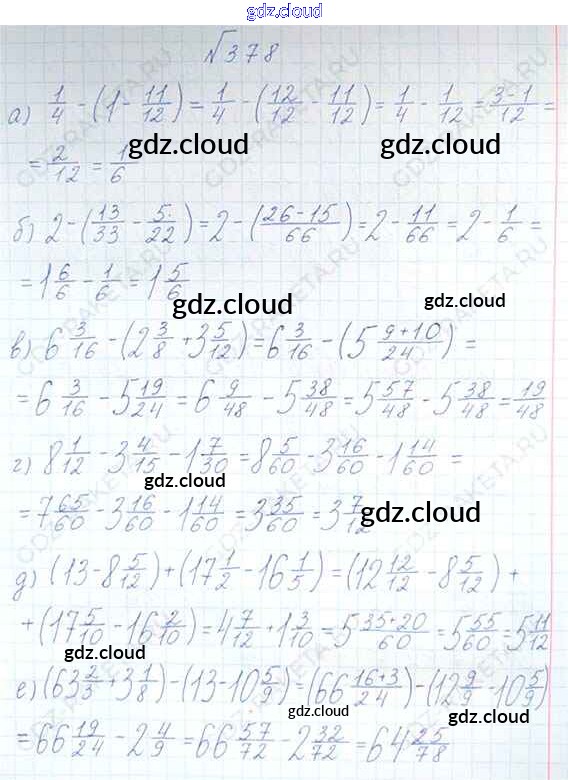 gdz.cloud
№378
а) 1/4 - (1 - 11/12) = 1/4 - (12/12 - 11/12) = 1/4 - 1/12 = (3-1)/12 =
= 2/12 = 1/6
gdz.cloud gdz.cloud
б) 2 - (13/33 - 5/22) = 2 - ((26-15)/66) = 2 - 11/66 = 2 - 1/6 =
= 1 6/6 - 1/6 = 1 5/6
gdz.cloud
в) 6 3/16 - (2 3/8 + 3 5/12) = 6 3/16 - (5 (9+10)/24) =
= 6 3/16 - 5 19/24 = 6 9/48 - 5 38/48 = 5 57/48 - 5 38/48 = 19/48
г) 8 1/12 - 3 4/15 - 1 7/30 = 8 5/60 - 3 16/60 - 1 14/60 =
gdz.cloud
= 7 65/60 - 3 16/60 - 1 14/60 = 3 35/60 = 3 7/12
gdz.cloud
д) (13 - 8 5/12) + (17 1/2 - 16 1/5) = (12 12/12 - 8 5/12) +
+ (17 5/10 - 16 2/10) = 4 7/12 + 1 3/10 = 5 (35+20)/60 = 5 55/60 = 5 11/12
gdz.cloud
е) (63 2/3 + 3 1/8) - (13 - 10 5/9) = (66 (16+3)/24) - (12 9/9 - 10 5/9)
gdz.cloud gdz.cloud
= 66 19/24 - 2 4/9 = 66 57/72 - 2 32/72 = 64 25/78
GDZ-RAKETA.RU